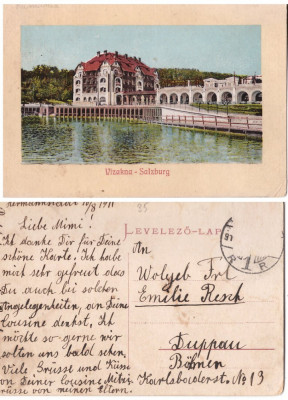 Vizakna - Salzburg
Hermannstadt 10/8 1911
Liebe Mimi!
Ich danke Dir für Deine
schöne Karte. Ich habe
mich sehr gefreut dass
Du auch bei solchen
Angelegenheiten, an Deine
Cousine denkst, Ich
möchte so gerne wir
sollten uns bald sehen,
Viele Grüsse und Küsse
von Deiner Cousine Mitzi
Grüsse von meinen Eltern.
85
LEVELEZŐ-LAP
An
Wolgeb Frl
Emilie Resch
Duppau
Böhmen
Karlsbaderst. No 13